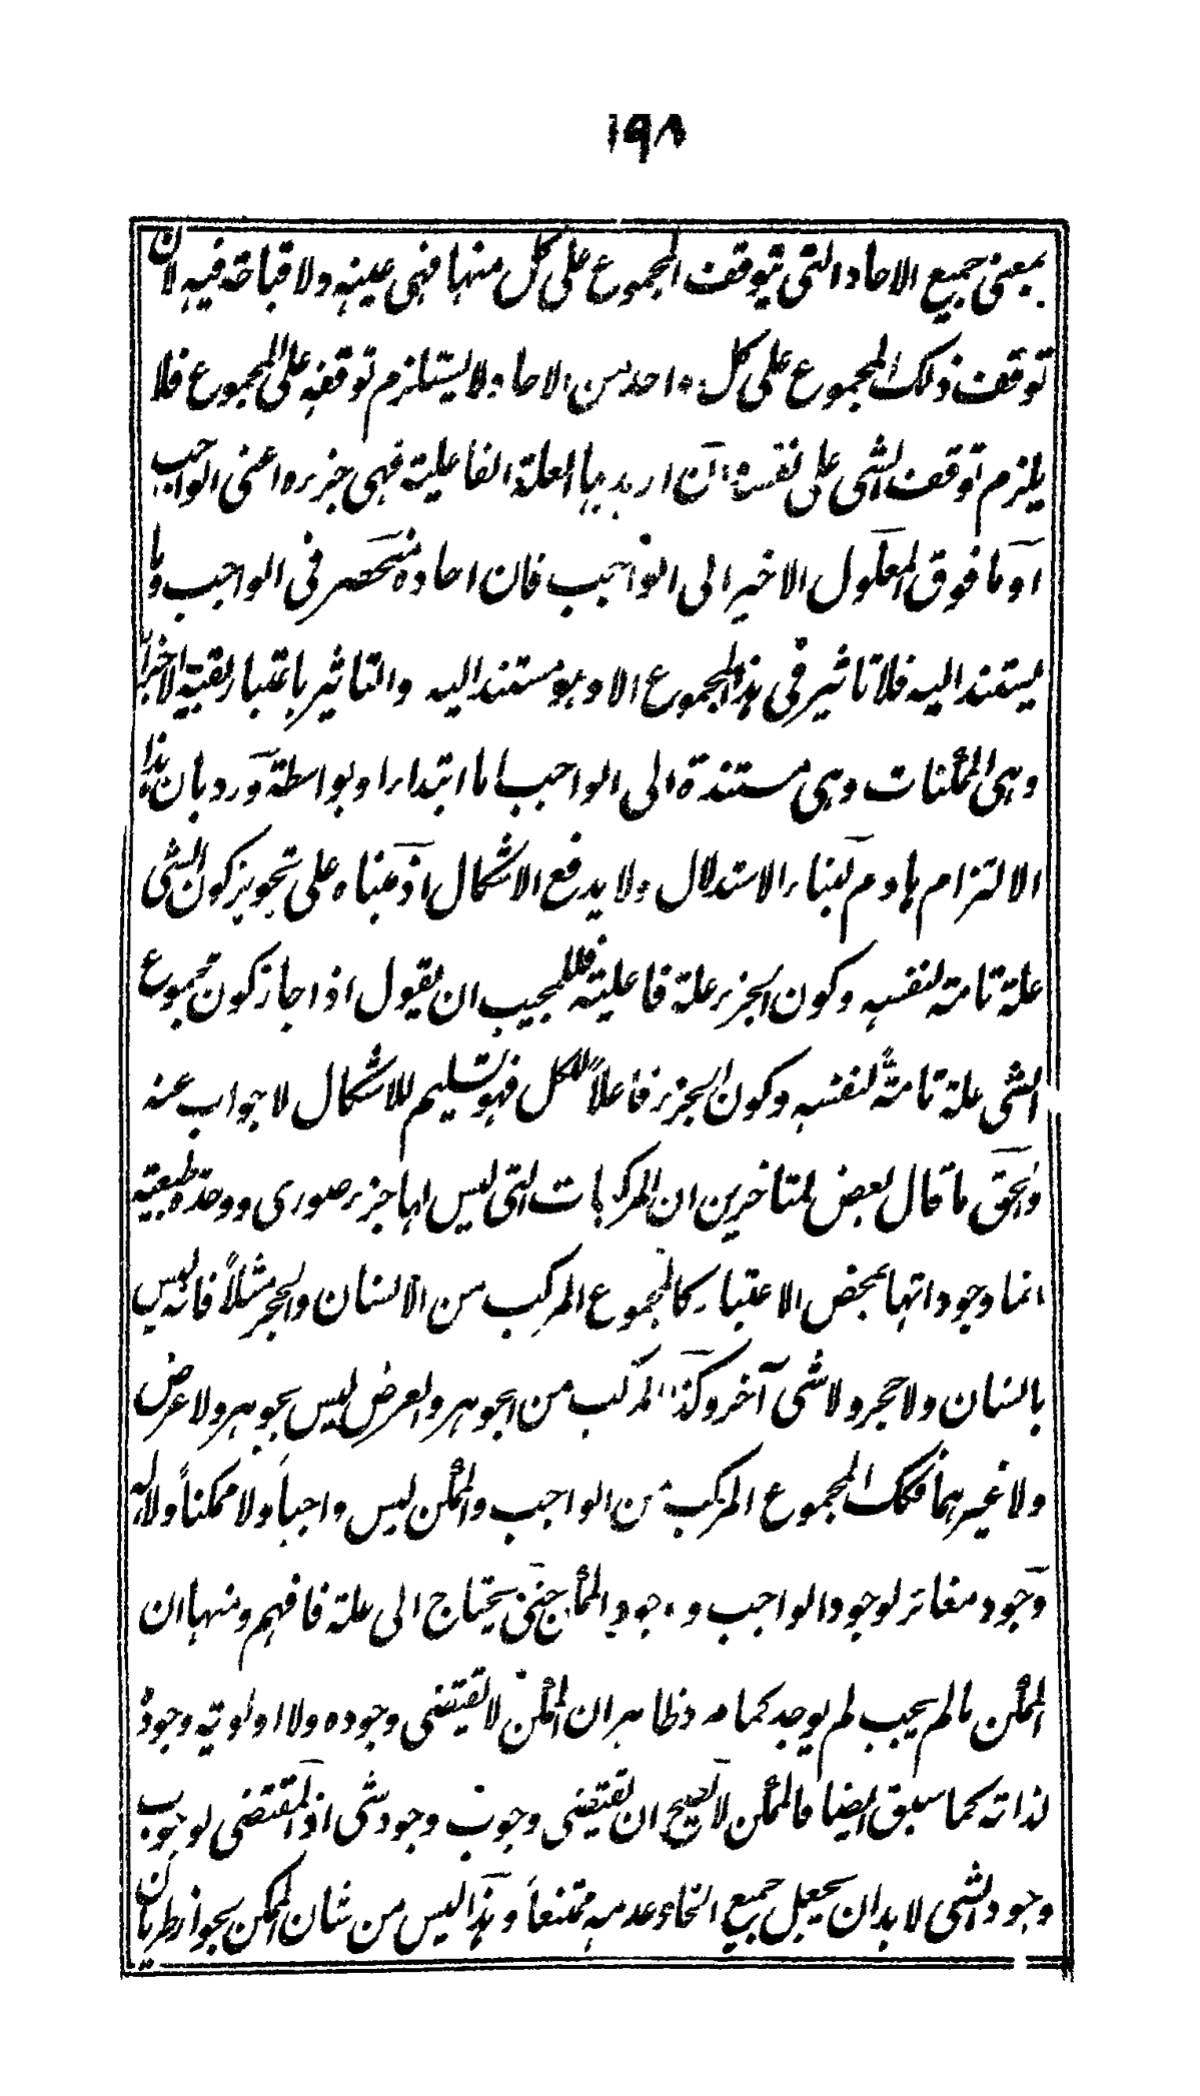 ١٩٨
بمعنى جميع الاحاد التى يتوقف المجموع على كل منها فهى عينه ولا قباحة فيه لان
توقف ذلك المجموع على كل واحد من الاحاد لا يستلزم توقفه على المجموع فلا
يلزم توقف الشى على نفسه وان اريد بها العلة الفاعلية فهى جزءه اعنى الواجب
او ما فوق المعلول الاخير الى الواجب فان احاده منحصر فى الواجب وما
يستند اليه فلا تاثير فى هذا المجموع الا وهو مستند اليه والتاثير باعتبار بقية الاجزاء
وهى الممكنات وهى مستندة الى الواجب اما ابتداء او بواسطة ورد بان هذا
الالتزام هادم لبناء الاستدلال ولا يدفع الاشكال اذ مبناه على تجويز كون الشى
علة تامة لنفسه وكون الجزء علة فاعلية فللمجيب ان يقول اذا جاز كون مجموع
الشى علة تامة لنفسه وكون الجزء فاعلاً للكل فهو تسليم للاشكال لا جواب عنه
والحق ما قال بعض المتاخرين ان المركبات التى ليس لها جزء صورى ووحدة طبعية
انما وجوداتها بمحض الاعتبار كالمجموع المركب من الانسان والحجر مثلاً فانه ليس
بانسان ولا حجر ولا شى آخر وكذا المركب من الجوهر والعرض ليس بجوهر ولا عرض
ولا غيرهما فكك المجموع المركب من الواجب والممكن ليس واجباً ولا ممكناً ولا له
وجود مغائر لوجود الواجب ووجود الممكن حتى يحتاج الى علة فافهم ومنها ان
الممكن ما لم يجب لم يوجد كما مر وظاهر ان الممكن لا يقتضى وجوده ولا اولوية وجوده
لذاته كما سبق ايضا فالممكن لا يصح ان يقتضى وجوب وجود شى اذ المقتضى لوجوب
وجود الشى لا بد ان يجعل جميع انحاء عدمه ممتنعاً وهذا ليس من شان الممكن لجواز طريان